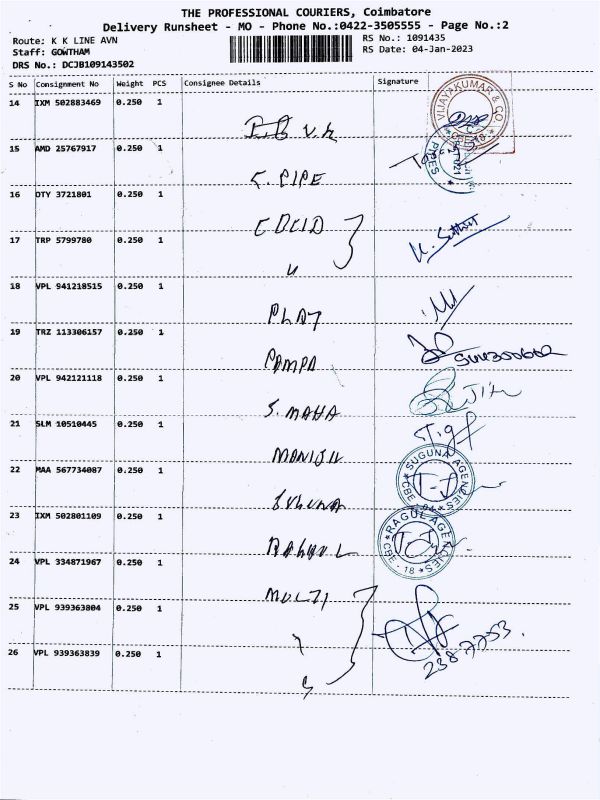 THE PROFESSIONAL COURIERS, Coimbatore
Delivery Runsheet - MO - Phone No.:0422-3505555 - Page No.:2
Route: K K LINE AVN
RS No.: 1091435
Staff: GOWTHAM
RS Date: 04-Jan-2023
DRS No.: DCJB109143502
S No Consignment No Weight PCS Consignee Details Signature
14 IXM 502883469 0.250 1
VIJAYAKUMAR & CO
15 AMD 25767917 0.250 1
PIPES
PIPE
16 OTY 3721801 0.250 1
17 TRP 5799780 0.250 1
18 VPL 941218515 0.250 1
PLAY
19 TRZ 113306157 0.250 1
PAMPA
20 VPL 942121118 0.250 1
S. MAHA
21 SLM 10510445 0.250 1
22 MAA 567734087 0.250 1
SUGUNA
SUGUNA AGENCIES CBE - 04
23 IXM 502801109 0.250 1
RAGUL AGENCIES CBE - 18
24 VPL 334871967 0.250 1
MULTI
25 VPL 939363804 0.250 1
2387753.
26 VPL 939363839 0.250 1